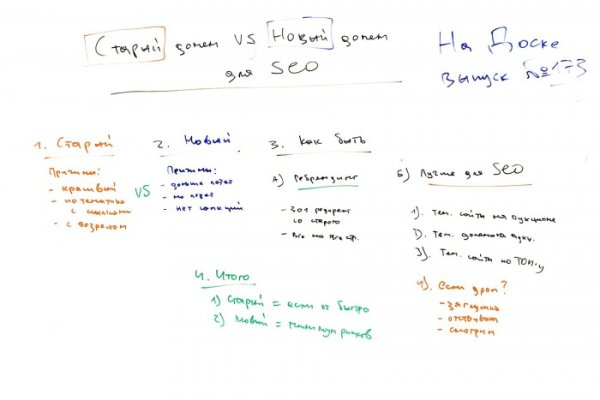 Старый домен VS Новый домен
для SEO
На Доске
выпуск №173
1. Старый
Причины:
- красивый
- по тематике
с ссылками
- с возрастом
VS
2. Новый
Причины:
- дольше
- не
- нет санкций
3. Как быть
А) Ребрендинг
- 301 редирект
со старого
- Все на все стр.
Б) Лучше для SEO
1). Тем. сайты на аукционе
2). Тем. домена аукц.
3). Тем. сайты по ТОП-у
4). Если дроп?
- заглушка
- отстаиваем
- смотрим
4. Итого
1) Старый = если ог быстро
2) Новый = минимум рисков